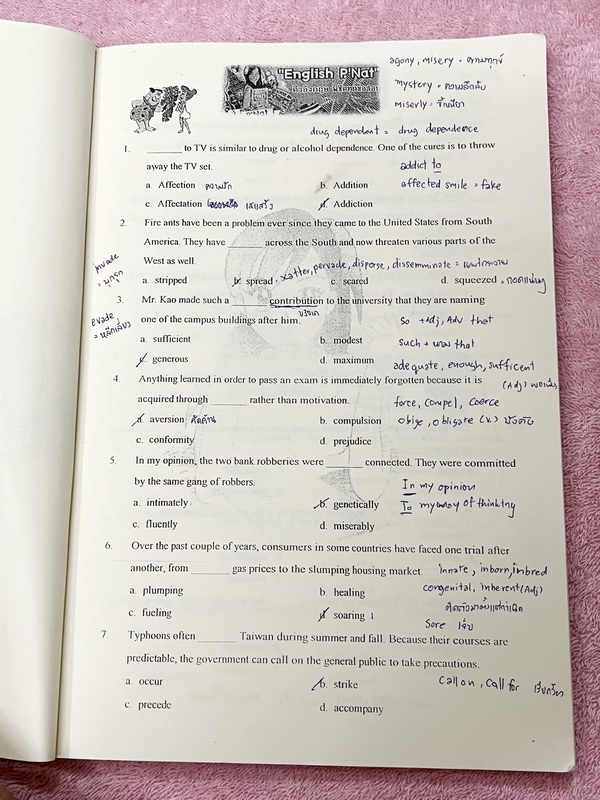 "English P'Nat"
agony, misery = ความทุกข์
mystery = ความลึกลับ
miserly = ขี้เหนียว
drug dependent = drug dependence
1. ________ to TV is similar to drug or alcohol dependence. One of the cures is to throw
away the TV set. addict to
a. Affection ความรัก b. Addition affected smile = fake
c. Affectation เสแสร้ง d. Addiction
2. Fire ants have been a problem ever since they came to the United States from South
America. They have ______ across the South and now threaten various parts of the
invade
= บุกรุก
West as well.
scatter, pervade, disperse, dissemminate =
a. stripped b. spread = c. scared d. squeezed =
3. Mr. Kao made such a ______ contribution to the university that they are naming
evade,
= หลีกเลี่ยง
บริจาค
one of the campus buildings after him. so + Adj, Adv that
a. sufficient b. modest such + นาม that
c. generous d. maximum adequate, enough, sufficient
(Adj) พอเพียง
4. Anything learned in order to pass an exam is immediately forgotten because it is
acquired through ______ rather than motivation. force, compel, coerce
a. aversion คัดค้าน b. compulsion oblige, obligate (v.) บังคับ
c. conformity d. prejudice
5. In my opinion, the two bank robberies were ______ connected. They were committed
by the same gang of robbers. In my opinion
a. intimately b. genetically To my way of thinking
c. fluently d. miserably
6. Over the past couple of years, consumers in some countries have faced one trial after
another, from ______ gas prices to the slumping housing market. innate, inborn, inbred
a. plumping b. healing congenital, inherent (Adj)
c. fueling d. soaring
sore เจ็บ
7. Typhoons often ______ Taiwan during summer and fall. Because their courses are
predictable, the government can call on the general public to take precautions.
a. occur b. strike call on, call for เรียกร้อง
c. precede d. accompany